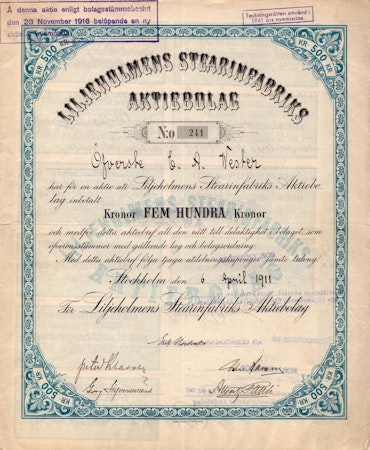 Å denna aktie enligt bolagsstämmobeslut
den 23 November 1916 belöpande en ny
aktie
Teckningsrätten använd i
1941 års nyemission.
KR. 500 KR.
KR. 500 KR.
LILJEHOLMENS STEARINFABRIKS
AKTIEBOLAG
N:o 241
Öfverste C. A. Vester
har för en aktie uti Liljeholmens Stearinfabriks Aktiebo
lag inbetalt
Kronor FEM HUNDRA Kronor
och medför detta aktiebref all den rätt till delaktighet i bolaget, som
öfverensstämmer med gällande lag och bolagsordning.
Med detta aktiebref följa tjugo utdelningskuponger jämte talong.
Stockholm den 6 April 1911
För Liljeholmens Stearinfabriks Aktiebolag
KR. 500 KR.
KR. 500 KR.